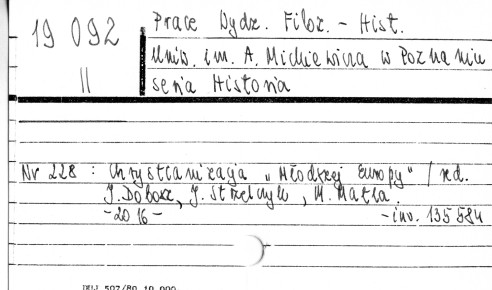 19 092
II
Prace Wydz. Filoz. - Hist.
Uniw. im. A. Mickiewicza w Poznaniu
seria Historia
Nr 228 : Chrystianizacja "Młodszej Europy" / red.
J. Dobosz, J. Strzelczyk, M. Matla.
- 2016 -
- inv. 135 584
DRUJ 507/80 10.000